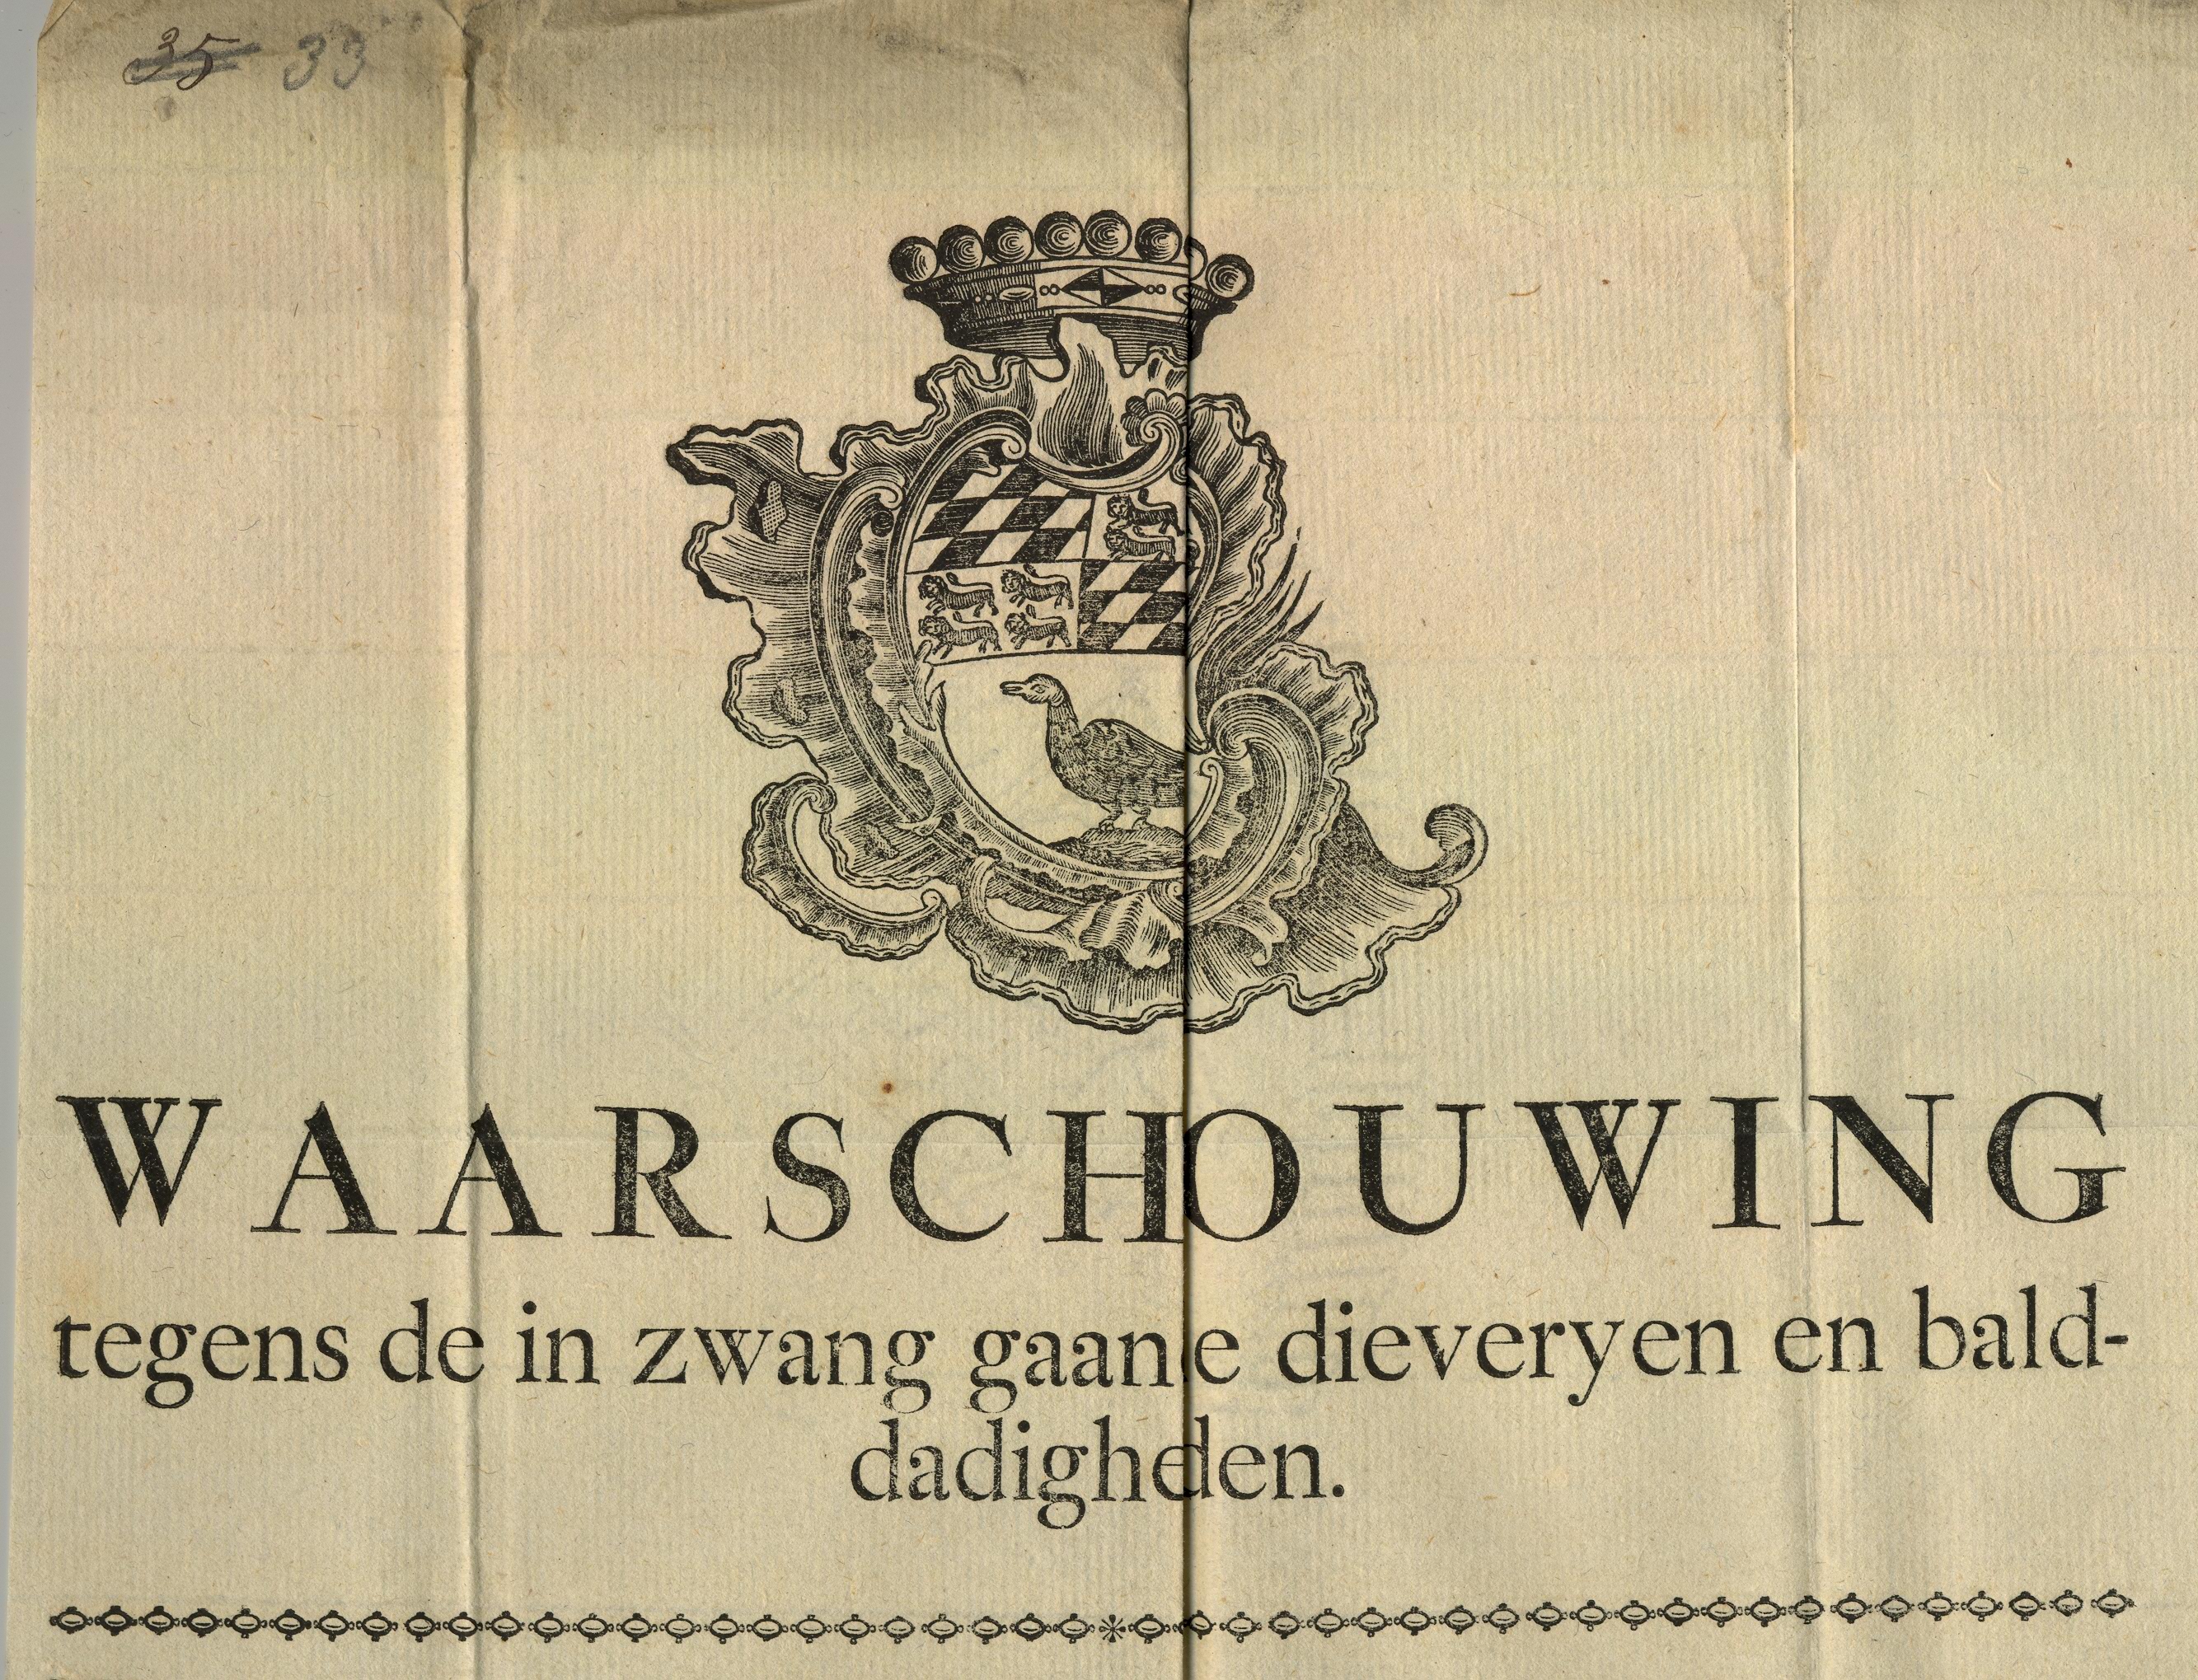 35 33
WAARSCHOUWING
tegens de in zwang gaane dieveryen en bald-
dadigheden.